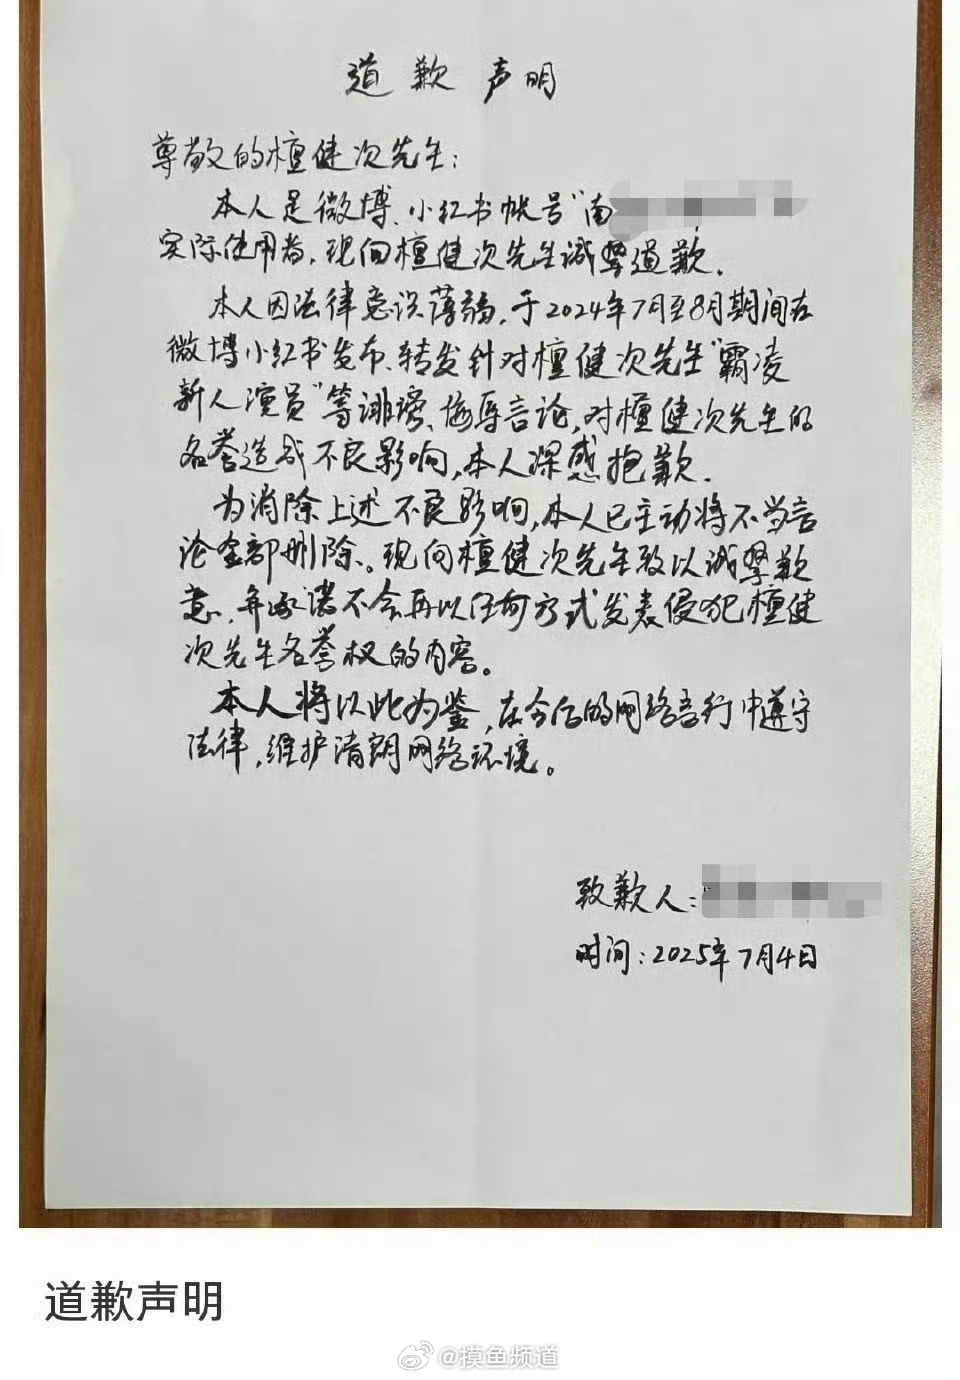 道歉声明
尊敬的檀健次先生：
本人是微博、小红书帐号"南
实际使用者，现向檀健次先生诚挚道歉.
本人因法律意识薄弱，于2024年7月至8月期间在
微博小红书发布、转发针对檀健次先生"霸凌
新人演员"等诽谤、侮辱言论，对檀健次先生的
名誉造成不良影响，本人深感抱歉.
为消除上述不良影响，本人已主动将不当言
论全部删除。现向檀健次先生致以诚挚歉
意，并承诺不会再以任何方式发表侵犯檀健
次先生名誉权的内容。
本人将以此为鉴，在今后的网络言行中遵守
法律，维护清朗网络环境。
致歉人：
时间：2025年7月4日
道歉声明
@摸鱼频道